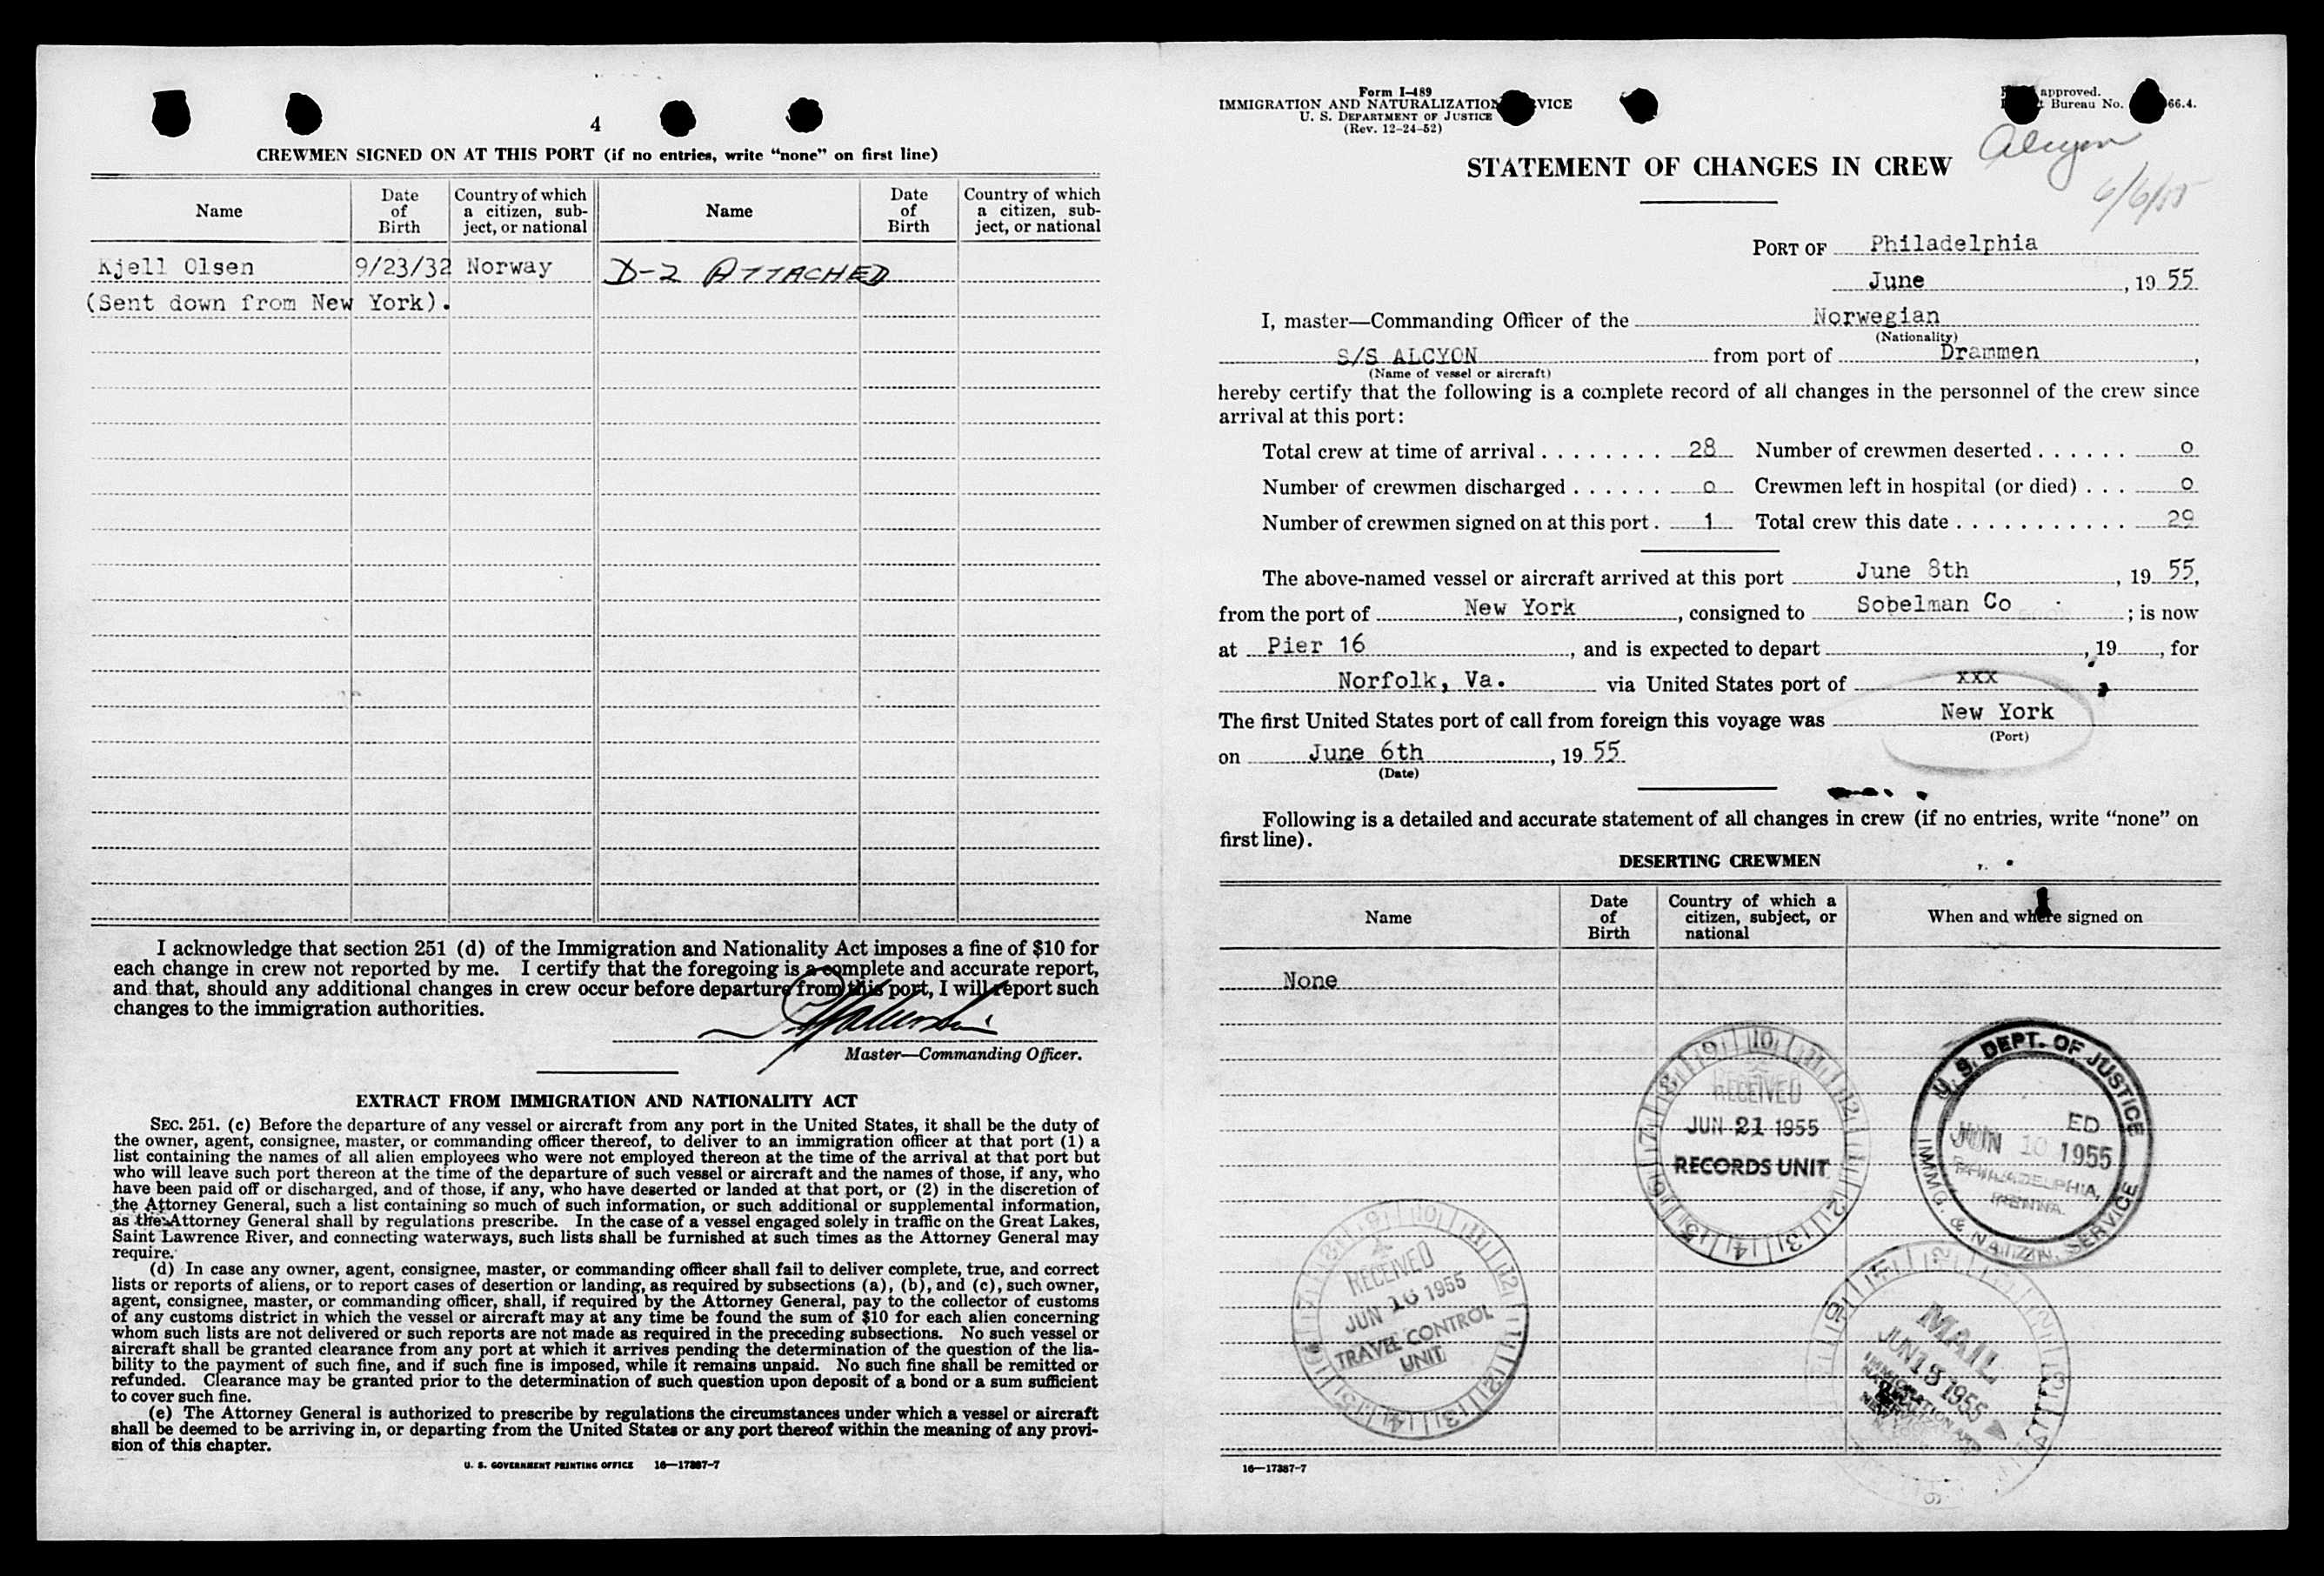 4
CREWMEN SIGNED ON AT THIS PORT (if no entries, write “none” on first line)
Name
Date of Birth
Country of which a citizen, subject, or national
Name
Date of Birth
Country of which a citizen, subject, or national
Kjell Olsen 9/23/32 Norway D-2 ATTACHED
(Sent down from New York).
I acknowledge that section 251 (d) of the Immigration and Nationality Act imposes a fine of $10 for
each change in crew not reported by me. I certify that the foregoing is a complete and accurate report,
and that, should any additional changes in crew occur before departure from this port, I will report such
changes to the immigration authorities.
Master—Commanding Officer.
EXTRACT FROM IMMIGRATION AND NATIONALITY ACT
SEC. 251. (c) Before the departure of any vessel or aircraft from any port in the United States, it shall be the duty of
the owner, agent, consignee, master, or commanding officer thereof, to deliver to an immigration officer at that port (1) a
list containing the names of all alien employees who were not employed thereon at the time of the arrival at that port but
who will leave such port thereon at the time of the departure of such vessel or aircraft and the names of those, if any, who
have been paid off or discharged, and of those, if any, who have deserted or landed at that port, or (2) in the discretion of
the Attorney General, such a list containing so much of such information, or such additional or supplemental information,
as the Attorney General shall by regulations prescribe. In the case of a vessel engaged solely in traffic on the Great Lakes,
Saint Lawrence River, and connecting waterways, such lists shall be furnished at such times as the Attorney General may
require.
(d) In case any owner, agent, consignee, master, or commanding officer shall fail to deliver complete, true, and correct
lists or reports of aliens, or to report cases of desertion or landing, as required by subsections (a), (b), and (c), such owner,
agent, consignee, master, or commanding officer, shall, if required by the Attorney General, pay to the collector of customs
of any customs district in which the vessel or aircraft may at any time be found the sum of $10 for each alien concerning
whom such lists are not delivered or such reports are not made as required in the preceding subsections. No such vessel or
aircraft shall be granted clearance from any port at which it arrives pending the determination of the question of the lia-
bility to the payment of such fine, and if such fine is imposed, while it remains unpaid. No such fine shall be remitted or
refunded. Clearance may be granted prior to the determination of such question upon deposit of a bond or a sum sufficient
to cover such fine.
(e) The Attorney General is authorized to prescribe by regulations the circumstances under which a vessel or aircraft
shall be deemed to be arriving in, or departing from the United States or any port thereof within the meaning of any provi-
sion of this chapter.
U. S. GOVERNMENT PRINTING OFFICE 16—17387-7
Form I-489
IMMIGRATION AND NATURALIZATION SERVICE
U. S. DEPARTMENT OF JUSTICE
(Rev. 12-24-52)
approved.
Bureau No. 66.4.
Alcyon
6/6/55
STATEMENT OF CHANGES IN CREW
PORT OF Philadelphia
June, 19 55
I, master—Commanding Officer of the Norwegian
(Nationality)
S/S ALCYON from port of Drammen,
(Name of vessel or aircraft)
hereby certify that the following is a complete record of all changes in the personnel of the crew since
arrival at this port:
Total crew at time of arrival . . . . . . . . 28 Number of crewmen deserted . . . . . . 0
Number of crewmen discharged . . . . . . 0 Crewmen left in hospital (or died) . . . 0
Number of crewmen signed on at this port . 1 Total crew this date . . . . . . . . . . . 29
The above-named vessel or aircraft arrived at this port June 8th, 19 55,
from the port of New York, consigned to Sobelman Co; is now
at Pier 16, and is expected to depart , 19 , for
Norfolk, Va. via United States port of xxx
The first United States port of call from foreign this voyage was New York
(Port)
on June 6th, 19 55.
(Date)
Following is a detailed and accurate statement of all changes in crew (if no entries, write “none” on
first line).
DESERTING CREWMEN
Name
Date of Birth
Country of which a citizen, subject, or national
When and where signed on
None
RECEIVED
JUN 21 1955
RECORDS UNIT
U. S. DEPT. OF JUSTICE
ED
JUN 10 1955
PHILADELPHIA,
PENNA.
IMMG. & NATZN. SERVICE
RECEIVED
JUN 16 1955
TRAVEL CONTROL
UNIT
MAIL
JUN 15 1955
16—17387-7